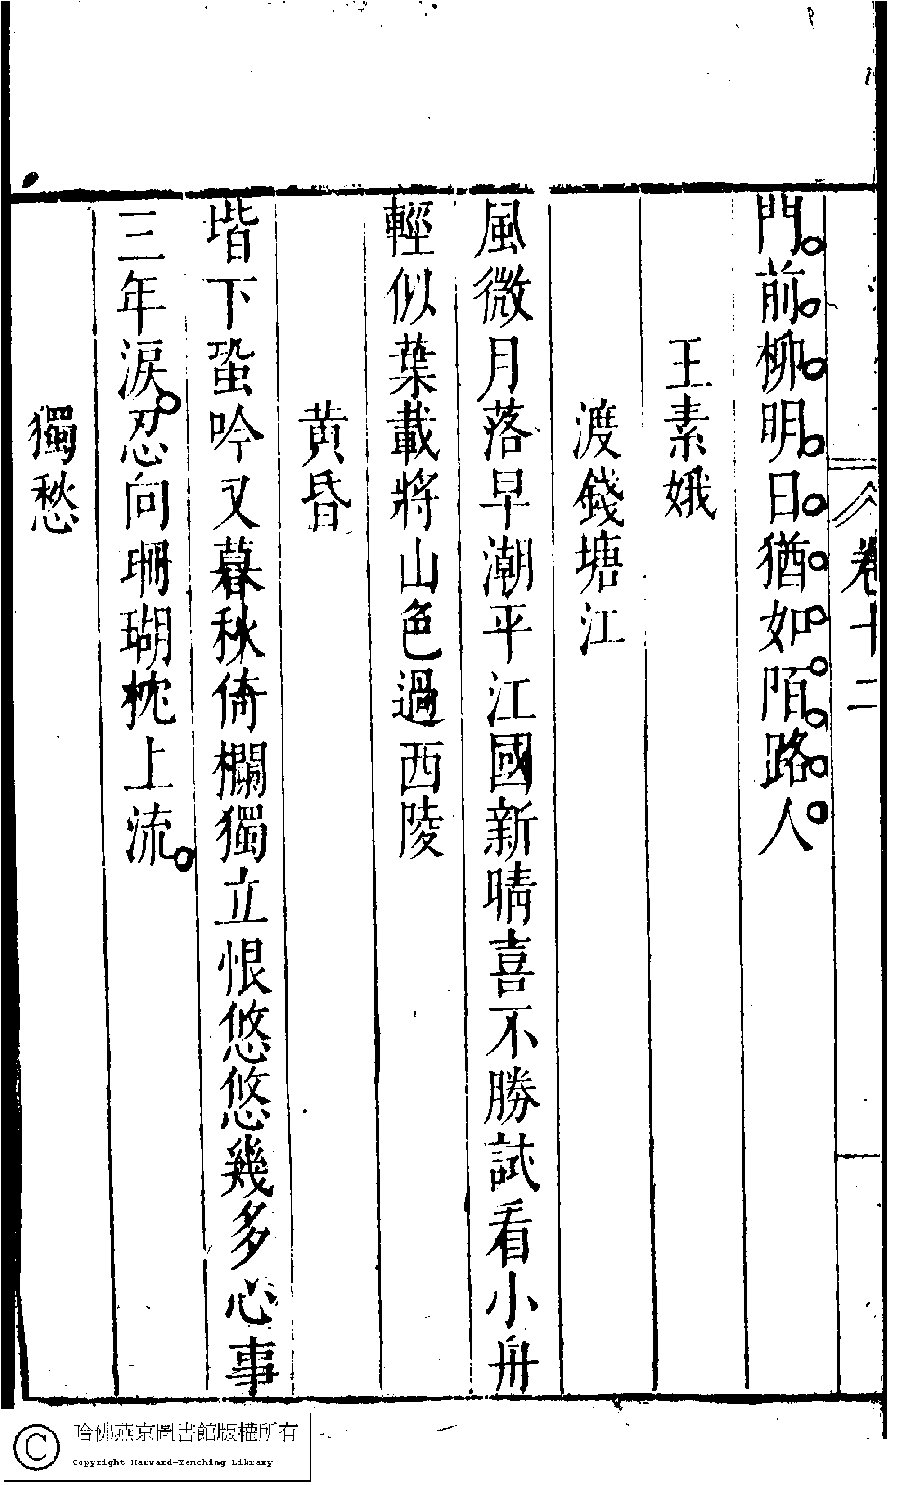 卷十二
門前柳明日猶如陌路人
王素娥
渡錢塘江
風微月落早潮平江國新晴喜不勝試看小舟
輕似葉載將山色過西陵
黃昏
堦下蛩吟又暮秋倚欄獨立恨悠悠幾多心事
三年淚忍向珊瑚枕上流
獨愁
哈佛燕京圖書館版權所有
Copyright Harvard-Yenching Library